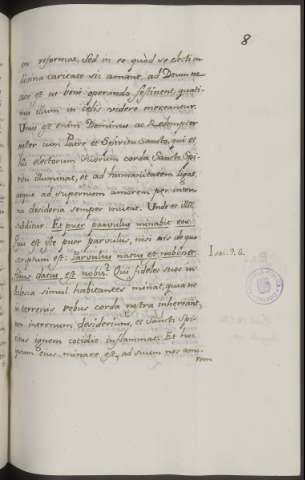 8
eos reformat, Sed in eo quòd ve electi in
divina caritate sic amant, ad Deum
et ve bene operando festinent, quati-
nus illum in celis videre mereantur.
Unus est enim Dominus ac Redemptor
noster cum Patre et Spiritu Sancto, qui et
electorum suorum corda Sancto Spi-
ritu illuminat, et ad humanitatem ligat,
atque ad supernum amorem per inter-
na desideria semper vniuit. Unde et illic
subditur. Et puer paruulus minabit eos.
Quis est iste puer paruulus, nisi ais de quo
scriptum est: Paruulus natus est nobis et
filius datus est nobis? Qui fideles suos in
Isai. 9. 6.
Eclesia simul habitantes minat, quia ne
in terrenis rebus corda nostra inhereant,
per internum desiderium, et Sancti Spi-
ritus ignem cotidie inflammat. Et
eius minare est, ad suum nos amo-
rem